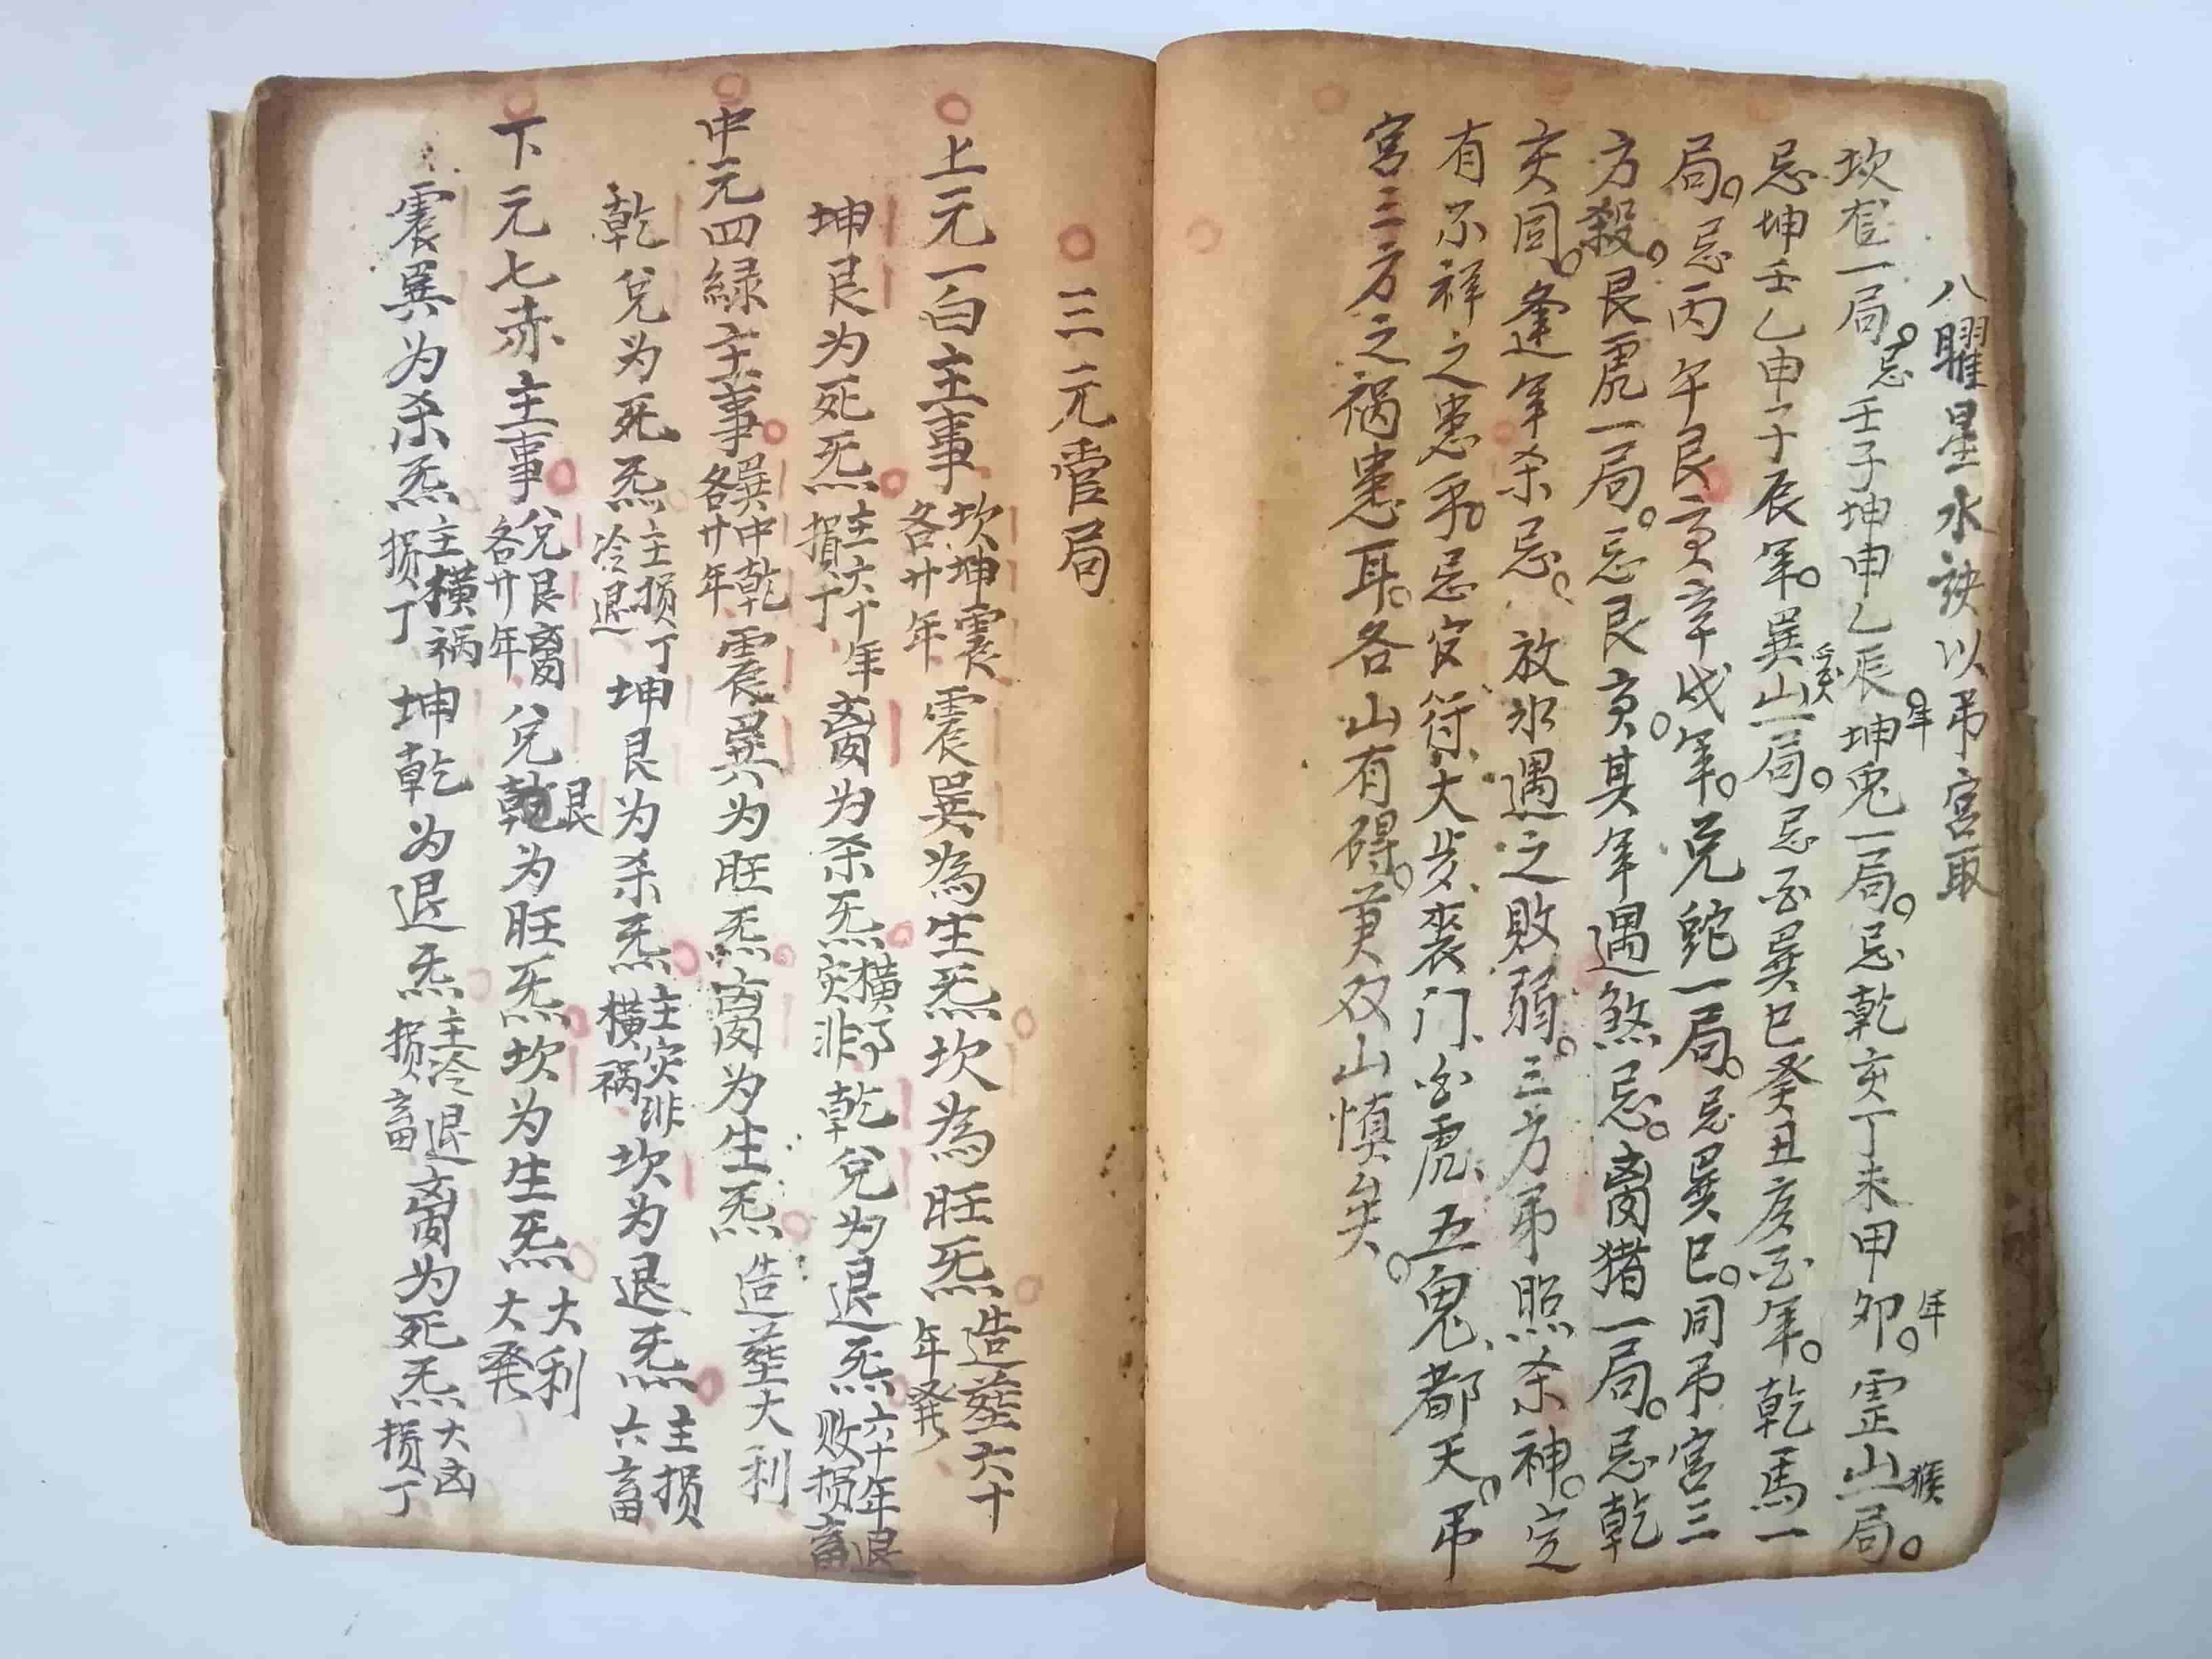 八曜星水訣以吊宮取
坎 一局。忌壬子坤申乙辰年。坤兎一局。忌乾亥丁未甲卯年。震山猴一局。
忌坤壬乙申子辰年。巽山雞一局。忌酉巽巳癸丑亥酉年。乾馬一
局。忌丙午艮寅辛戌年。兑蛇一局。忌巽巳。同吊宮三
方殺。艮虎一局。忌艮寅。其年遇煞忌。离猪一局。忌乾
亥同。逢年杀忌。放水遇之敗弱。三方吊照杀神。定
有不祥之患乎。忌官符、大步、喪门、白虎、五鬼、都天。吊
宮三方之祸患耳。各山有碍。兼双山慎矣。
三元管局
上元一白主事 坎坤震各廿年 震巽為生炁坎為旺炁 造葬六十年発
坤艮为死炁 主六十年損丁 离为杀炁 橫事灾非 乾兌为退炁 六十年退败损畜
中元四緑主事 巽中乾各廿年 震巽为旺炁离为生炁 造葬大利
乾兌为死炁 主损丁冷退 坤艮为杀炁 主灾非橫祸 坎为退炁 主损六畜
下元七赤主事 兌艮离各廿年 兌艮为旺炁坎为生炁 大利大発
震巽为杀炁 主橫祸损丁 坤乾为退炁 主冷退损畜 离为死炁 大凶损丁